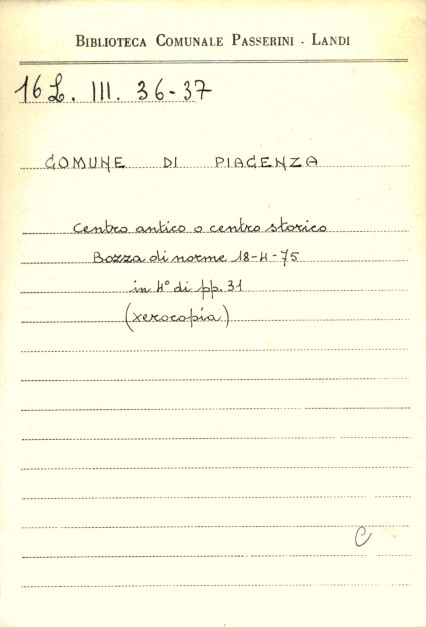 BIBLIOTECA COMUNALE PASSERINI - LANDI
16 L. III. 36-37
COMUNE DI PIACENZA
Centro antico o centro storico
Bozza di norme 18-4-75
in 4° di pp. 31
(xerocopia)
C